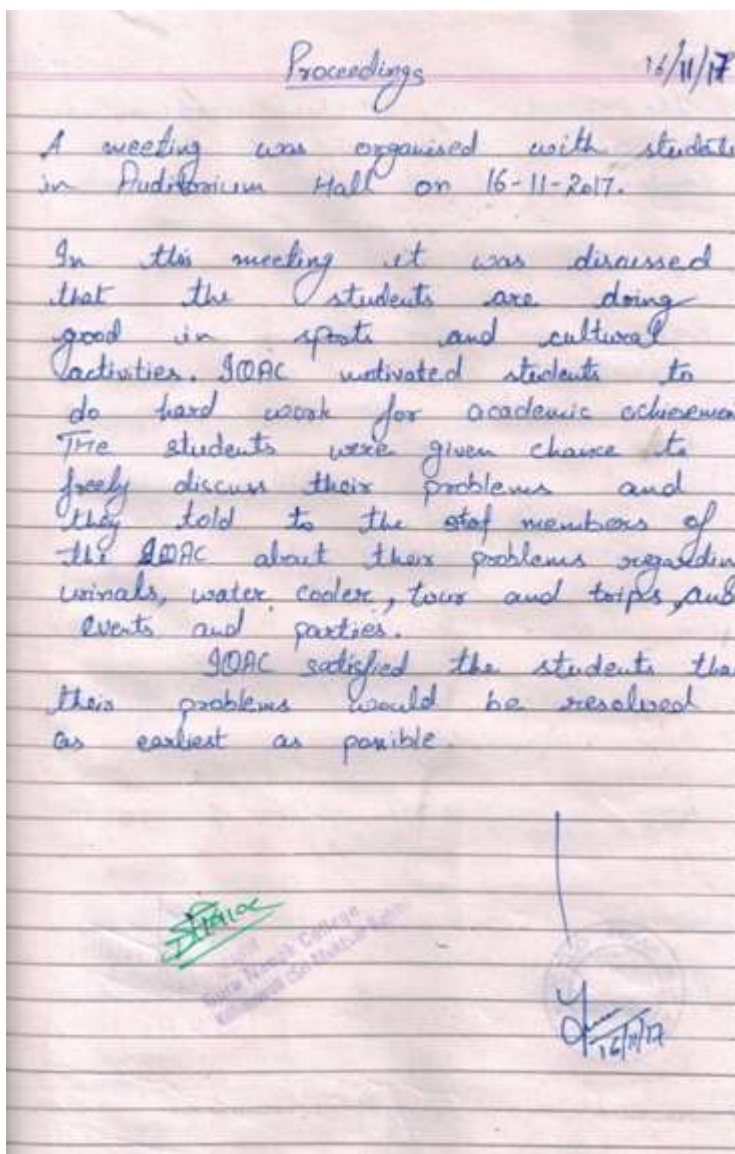 Proceedings 16/11/17
A meeting was organised with students
in Auditorium Hall on 16-11-2017.
In this meeting it was discussed
that the students are doing
good in sports and cultural
activities. IQAC motivated students to
do hard work for academic achievemen
The students were given chance to
freely discuss their problems and
they told to the staf members of
the IQAC about their problems regardin
urinals, water cooler, tour and trips, and
events and parties.
IQAC satisfied the students tha
their problems would be resolved
as earliest as possible.
Guru Nanak College
16/11/17